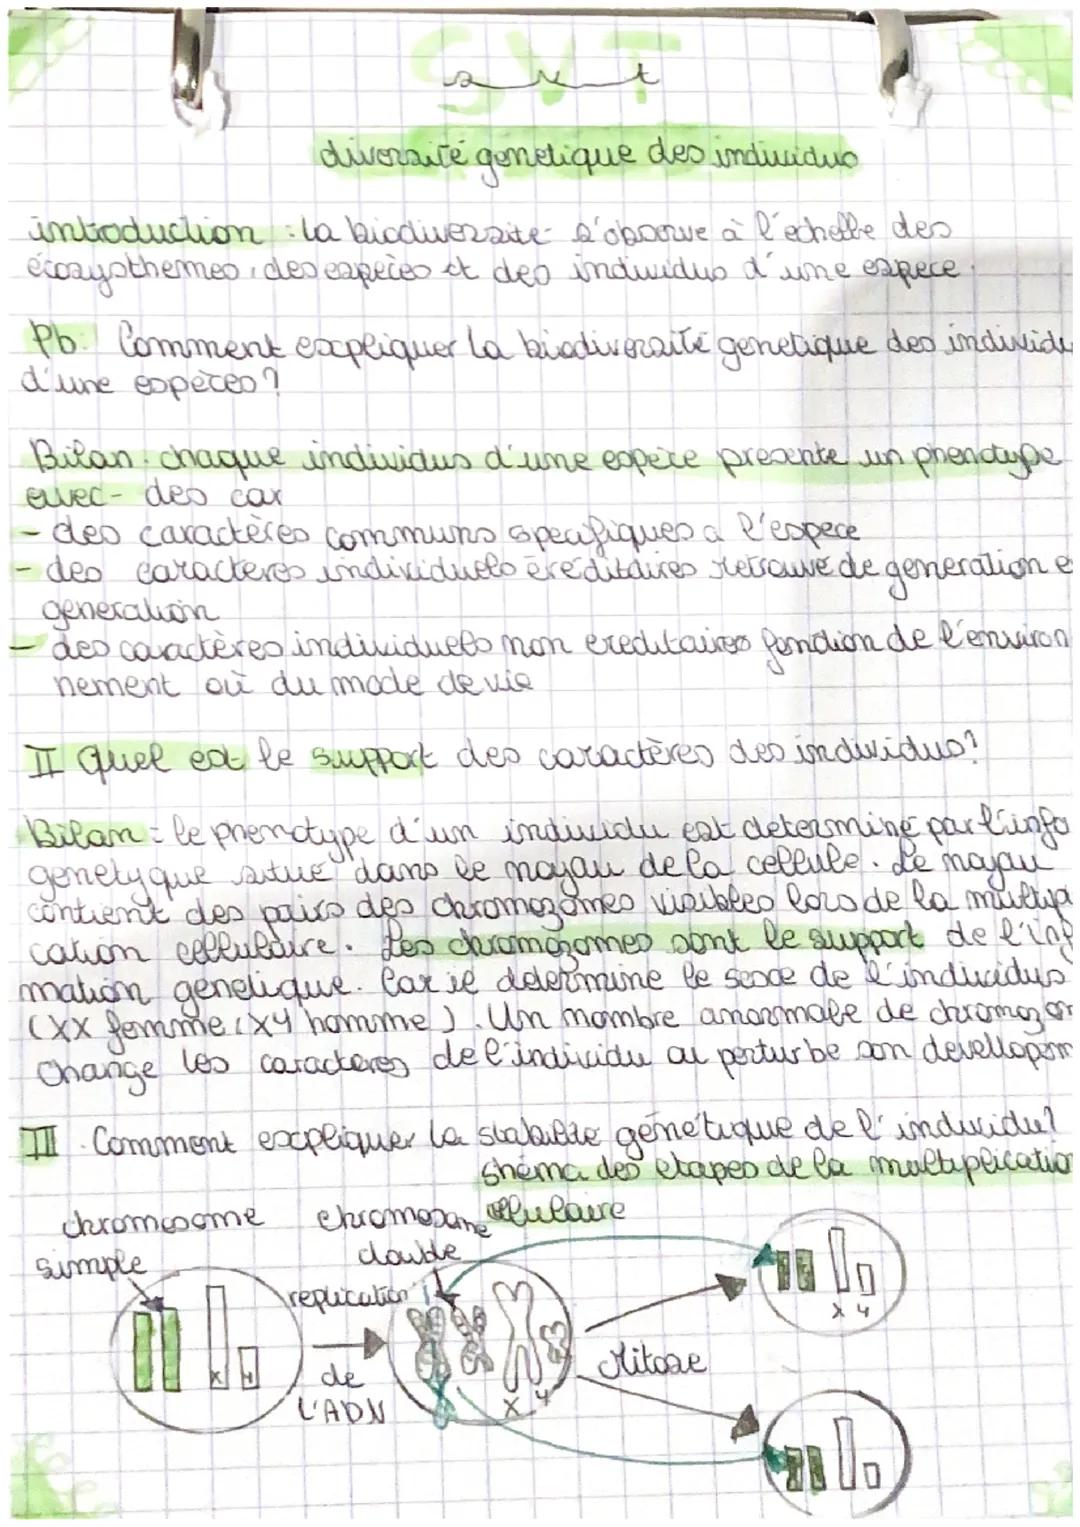 SVT
svt
diversité genetique des individus
introduction : la biodiversite s'observe à l'echelle des
écozysthemes, des espèces et des individus d'une espece.
Pb: Comment expliquer la biodiversité genetique des individu
d'une espèces?
Bilan: chaque individus d'une espèce presente un phenotype
avec- des car
- des caractères communs specifiques a l'espece
- des caracteres individuels éréditaires retrouvé de generation e
generation
- des caractères individuels non ereditaires fonction de l'environ
nement où du mode de vie
II Quel est le support des caractères des individus?
Bilan = le phenotype d'un individu est determiné par l'info
genetyque situé dans le noyau de la cellule. Le noyau
contient des pairs des chromozomes visibles lors de la multipl
cation cellulaire. Les chromozomes sont le support de l'inf
mation genetique. Car il determine le sexe de l'individus
(XX femme, XY homme). Un nombre anormale de chromozom
change les caracteres de l'individu ou perturbe son developpem
III. Comment expliquer la stabilité génétique de l'individu?
shéma des etapes de la multiplication
cellulaire
chromosome simple
chromosome double
replication
de
L'ADN
X Y
X Y
Mitose
X Y